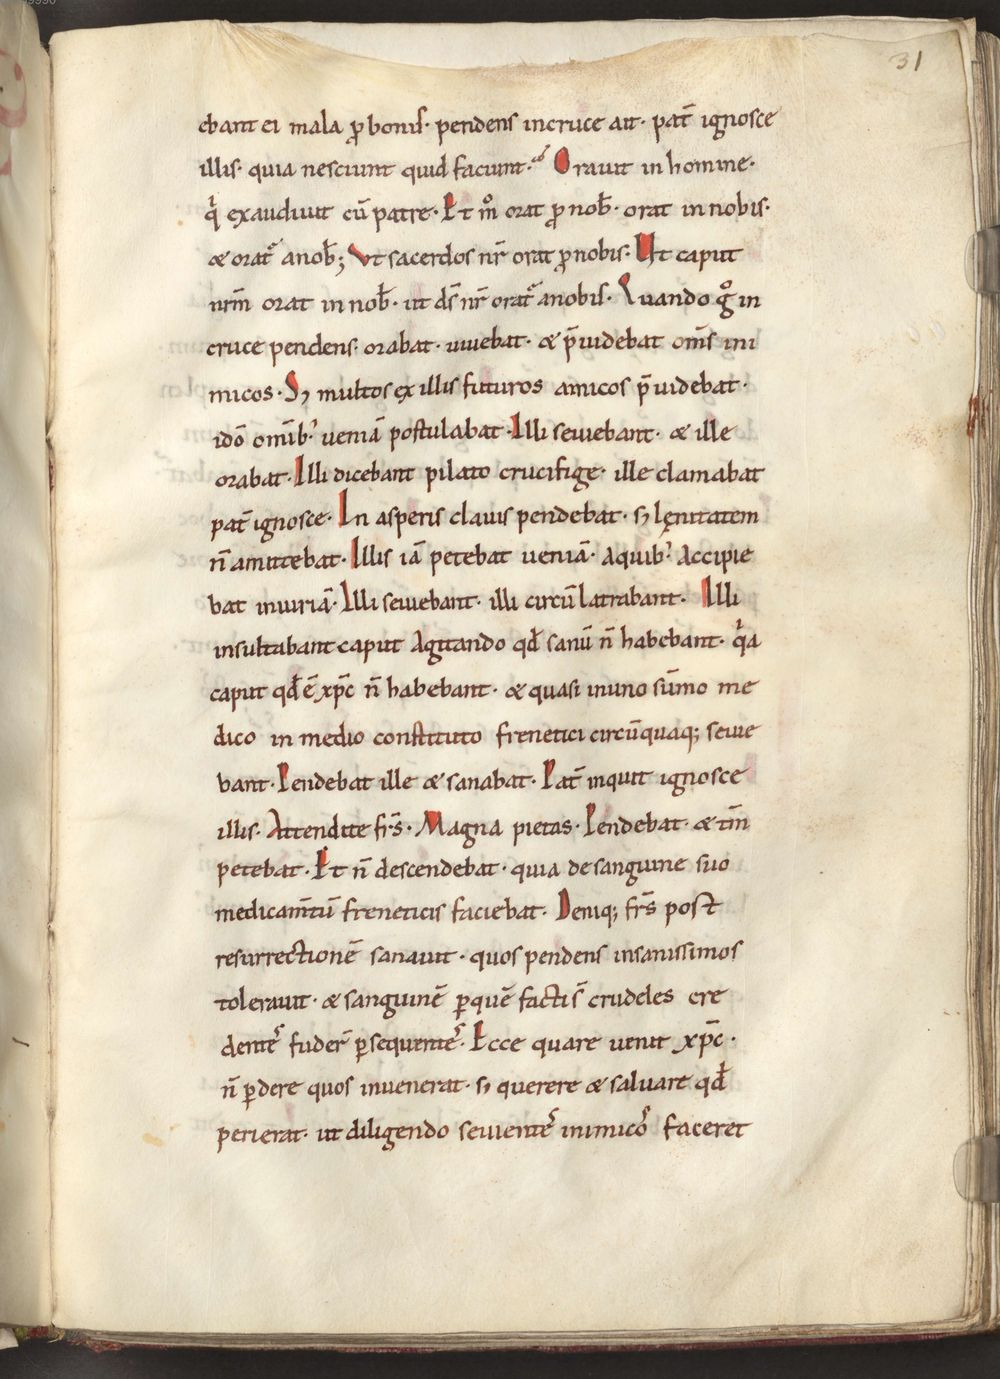 31
ebant ei mala ꝓ bonis· pendens incruce ait· pat̄ ignosce
illis· quia nesciunt quid faciunt· Orauit in homine·
qͥ exaudiuit cū patre· Et m̊ orat ꝓ nob̄· orat in nobis·
& orat᷑ anob̄; Vt sacerdos nr̄ orat ꝓ nobis· Vt caput
nrm̄ orat in nob̄· ut ds̄ nr̄ orat᷑ anobis· Quando gͦ in
cruce pendens orabat· uiuebat· & p̄uidebat om̄s ini
micos· S; multos ex illis futuros amicos p̄uidebat·
idō omib; ueniā postulabat· Illi seuiebant· & ille
orabat· Illi dicebant pilato crucifige· ille clamabat
pat̄ ignosce· In asperis clauis pendebat· s; lęnitatem
n̄ amittebat· Illis iā petebat ueniā· aquib; accipie
bat iniuriā· Illi seuiebant· illi circū latrabant· Illi
insultabant caput agitando qd̄ sanū n̄ habebant· qͥa
caput qd̄ ē xp̄c n̄ habebant· & quasi inuno sūmo me
dico in medio constituto frenetici circūquaq; seuie
bant· Pendebat ille & sanabat· Pat̄ inquit ignosce
illis· Attendite fr̄s· Magna pietas· Pendebat· & tm̄
petebat· Et n̄ descendebat· quia de sanguine suo
medicam̄tū freneticis faciebat· Deniq; fr̄s post
resurrectionē sanauit· quos pendens insanissimos
tolerauit· & sanguinē ꝑquē facti s̄ crudeles cre
dentes fuder̄ ꝑsequentes· Ecce quare uenit xp̄c·
n̄ ꝑdere quos inuenerat· s; querere & saluare qd̄
perierat· ut diligendo seuientes inimicos faceret